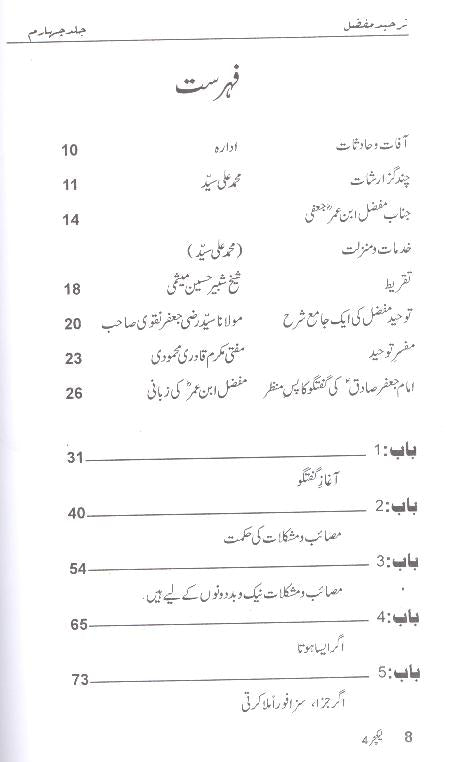 توحید مفضل جلد چہارم
فہرست
آفات و حادثات ادارہ 10
چند گزارشات محمد علی سیّد 11
جناب مفضل ابن عمرؓ جعفی 14
خدمات و منزلت (محمد علی سیّد)
تقریظ شیخ شبیر حسین میثمی 18
توحید مفضل کی ایک جامع شرح مولانا سیّد رضی جعفر نقوی صاحب 20
مفسرِ توحید مفتی مکرم قادری محمودی 23
امام جعفر صادق ؑ کی گفتگو کا پس منظر مفضل ابن عمرؓ کی زبانی 26
باب:1 31
آغازِ گفتگو
باب:2 40
مصائب و مشکلات کی حکمت
باب:3 54
مصائب و مشکلات نیک و بد دونوں کے لیے ہیں.
باب:4 65
اگر ایسا ہوتا
باب:5 73
اگر جزا، سزا فوراً ملا کرتی
8 لیکچر 4